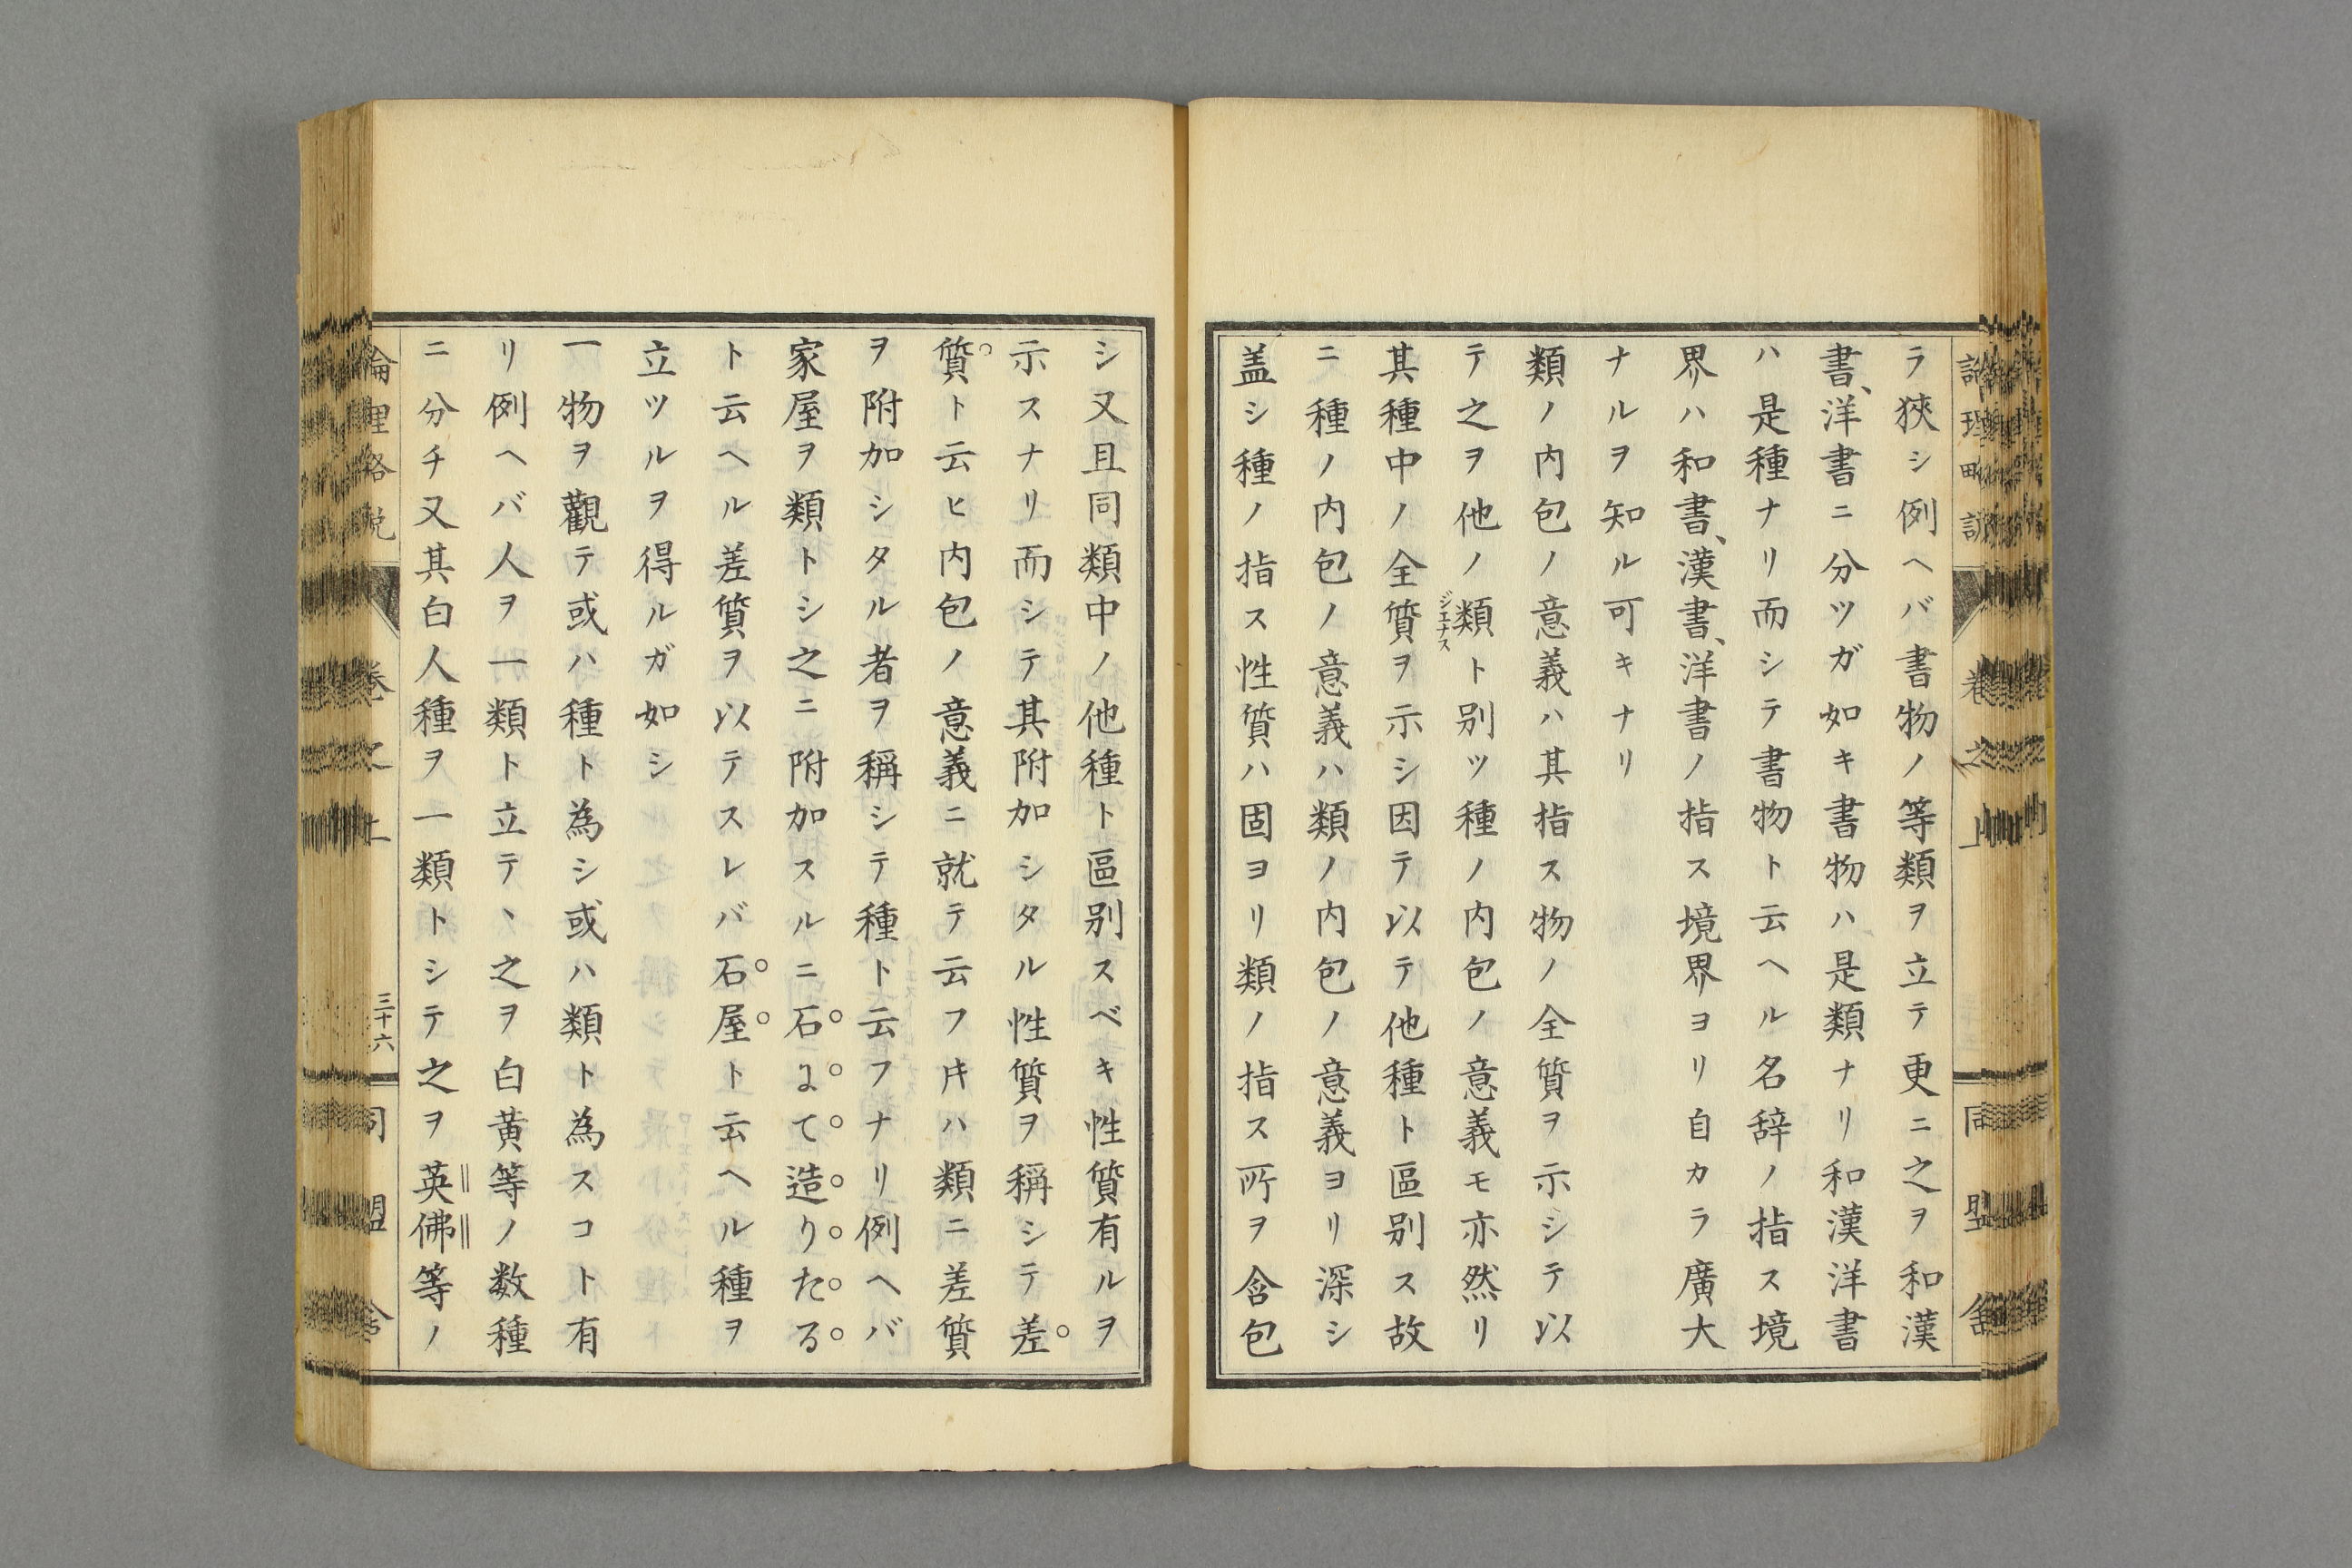 ラ狹シ例ヘバ書物ノ等類ヲ立テ更ニ之ヲ和漢
書、洋書ニ分ツガ如キ書物ハ是類ナリ和漢洋書
ハ是種ナリ而シテ書物ト云ヘル名辞ノ指ス境
界ハ和書、漢書、洋書ノ指ス境界ヨリ自カラ廣大
ナルヲ知ル可キナリ
類ノ内包ノ意義ハ其指ス物ノ全質ヲ示シテ以
テ之ヲ他ノ類ト別ツ種ノ内包ノ意義モ亦然リ
ジエナス
其種中ノ全質ヲ示シ因テ以テ他種ト區別ス故
ニ種ノ内包ノ意義ハ類ノ内包ノ意義ヨリ深シ
盖シ種ノ指ス性質ハ固ヨリ類ノ指ス所ヲ含包
シ又且同類中ノ他種ト區別スベキ性質有ルヲ
示スナリ而シテ其附加シタル性質ヲ稱シテ差
質ト云ヒ内包ノ意義ニ就テ云フ𪜈ハ類ニ差質
ヲ附加シタル者ヲ稱シテ種ト云フナリ例ヘバ
家屋ヲ類トシ之ニ附加スルニ石よて造りたる
ト云ヘル差質ヲ以テスレバ石屋ト云ヘル種ヲ
立ツルヲ得ルガ如シ
一物ヲ觀テ或ハ種ト為シ或ハ類ト為スコト有
リ例ヘバ人ヲ一類ト立テヽ之ヲ白黃等ノ数種
ニ分チ又其白人種ヲ一類トシテ之ヲ英佛等ノ
卷之上
三十六
同盟舎